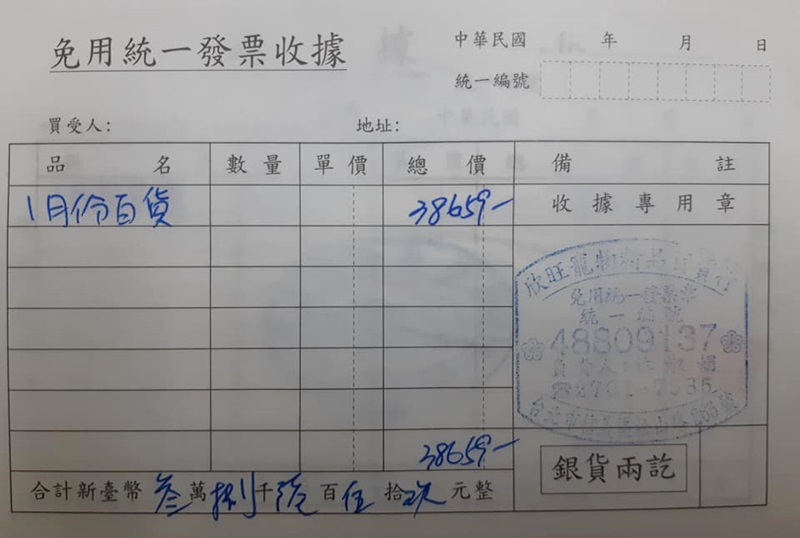 免用統一發票收據
中華民國 年 月 日
統一編號
買受人： 地址：
品名 數量 單價 總價 備註
1月份百貨 38659- 收據專用章
欣旺寵物
免用統一發票章
統一編號
48809137
負責人
台北市信義區
38659-
合計新臺幣 叁萬捌千陸百伍拾玖元整
銀貨兩訖